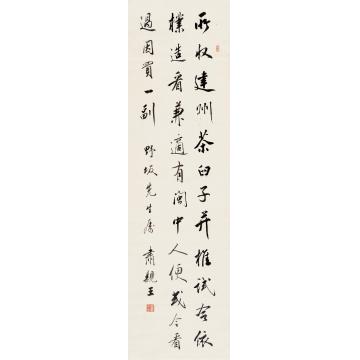 所收建州茶臼子并椎試令依
樣造看兼適有閩中人便或令看
過因買一副 野坂先生屬 肅親王